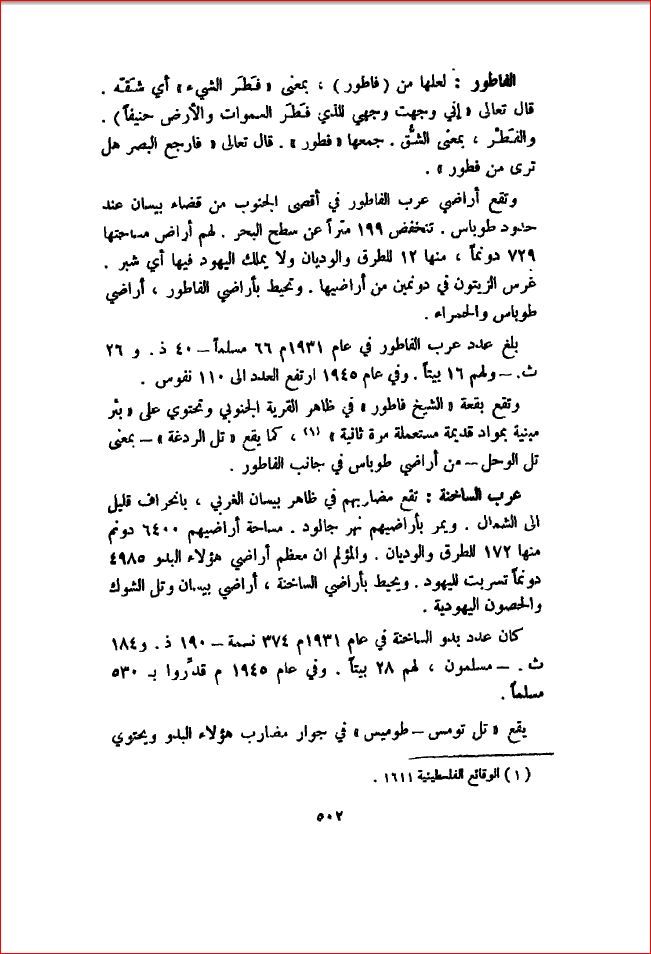 الفاطور : لعلها من (فاطور) ، بمعنى «فَطَرَ الشيء» أي شَقّه .
قال تعالى «إني وجهت وجهي للذي فَطَرَ السموات والأرض حنيفاً) .
والفَطْر ، بمعنى الشَّق . جمعها «فطور» . قال تعالى « فارجع البصر هل
ترى من فطور» .
وتقع أراضي عرب الفاطور في أقصى الجنوب من قضاء بيسان عند
حدود طوباس . تنخفض ١٩٩ متراً عن سطح البحر . لهم أراض مساحتها
٧٢٩ دونماً ، منها ١٢ للطرق والوديان ولا يملك اليهود فيها أي شبر .
غرس الزيتون في دونمين من أراضيها . وتحيط بأراضي الفاطور ، أراضي
طوباس والحمراء .
بلغ عدد عرب الفاطور في عام ١٩٣١م ٦٦ مسلماً – ٤٠ ذ. و ٢٦
ث. – ولهم ١٦ بيتاً . وفي عام ١٩٤٥ ارتفع العدد الى ١١٠ نفوس .
وتقع بقعة «الشيخ فاطور» في ظاهر القرية الجنوبي وتحتوي على «بئر
مبنية بمواد قديمة مستعملة مرة ثانية» (١) ، كما يقع «تل الردغة» – بمعنى
تل الوحل – من أراضي طوباس في جانب الفاطور .
عرب الساخنة : تقع مضاربهم في ظاهر بيسان الغربي ، بانحراف قليل
الى الشمال . ويمر بأراضيهم نهر جالود . مساحة أراضيهم ٦٤٠٠ دونم
منها ١٧٢ للطرق والوديان . والمؤلم ان معظم أراضي هؤلاء البدو ٤٩٨٥
دونماً تسربت لليهود . ويحيط بأراضي الساخنة ، أراضي بيسان وتل الشوك
والحصون اليهودية .
كان عدد بدو الساخنة في عام ١٩٣١م ٣٧٤ نسمة – ١٩٠ ذ. و١٨٤
ث. – مسلمون ، لهم ٢٨ بيتاً . وفي عام ١٩٤٥ م قدِّروا بـ ٥٣٠
مسلماً .
يقع «تل تومس – طوميس» في جوار مضارب هؤلاء البدو ويحتوي
(١) الوقائع الفلسطينية ١٦١١ .
٥٠٢